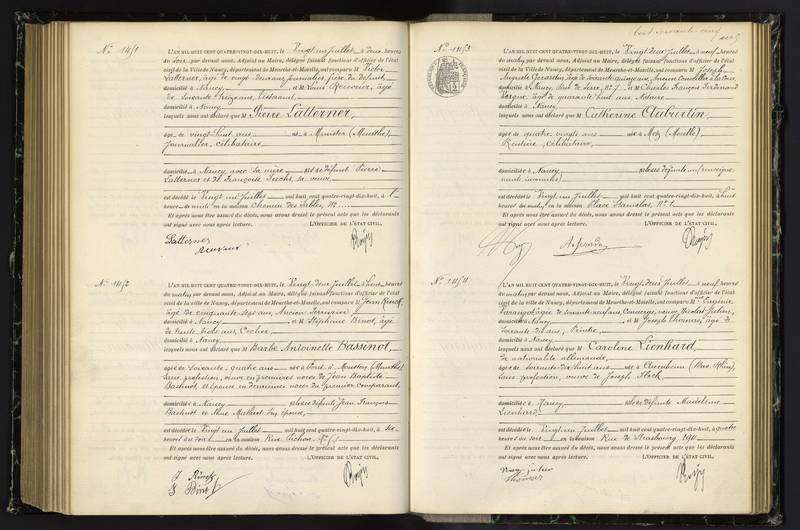 N° 1451
L'AN MIL HUIT CENT QUATRE-VINGT-DIX-HUIT, le Vingt un Juillet à deux heures
du soir, par devant nous, Adjoint au Maire, délégué faisant fonctions d'officier de l'état
civil de la Ville de Nancy, département de Meurthe-et-Moselle, ont comparu M Victor
Latterner, âgé de vingt deux ans, journalier, frère du défunt,
domicilié à Nancy, et M Louis Reuvaux, âgé
de soixante treize ans,
domicilié à Nancy
lesquels nous ont déclaré que M Pierre Latterner,
âgé de vingt huit ans né à Munster
journalier, célibataire
domicilié à Nancy avec sa mère fils de défunt Pierre
Latterner et de Françoise Fuchs, sa veuve
est décédé le Vingt un Juillet mil huit cent quatre-vingt-dix-huit, à
heure du en la maison Chemin des Sables, N°
Et après nous être assuré du décès, nous avons dressé le présent acte que les déclarants
ont signé avec nous après lecture. L'OFFICIER DE L'ÉTAT CIVIL,
Latterner
N° 1452
L'AN MIL HUIT CENT QUATRE-VINGT-DIX-HUIT, le Vingt deux Juillet à huit heures
du matin par devant nous, Adjoint au Maire, délégué faisant fonctions d'officier de l'état
civil de la ville de Nancy, département de Meurthe-et-Moselle, ont comparu M Jean
âgé de cinquante sept ans, ancien
domicilié à Nancy et M Stéphane Binot, âgé
de trente trois ans, Cocher
domicilié à Nancy
lesquels nous ont déclaré que M Barbe Antoinette Bassinot,
âgée de soixante quatre ans née à Pont à Mousson (Meurthe)
sans profession, veuve en premières noces de Jean Baptiste
Bassinot, et épouse en deuxièmes noces du premier comparant,
domiciliée à Nancy fille de défunts Jean François
Bassinot et
est décédée le Vingt un Juillet mil huit cent quatre-vingt-dix-huit, à six
heures du soir en la maison Rue
Et après nous être assuré du décès, nous avons dressé le présent acte que les déclarants
ont signé avec nous après lecture. L'OFFICIER DE L'ÉTAT CIVIL,
N° 1453
L'AN MIL HUIT CENT QUATRE-VINGT-DIX-HUIT, le Vingt deux Juillet à neuf heures
du matin, par devant nous, Adjoint au Maire, délégué faisant fonctions d'officier de l'état
civil de la Ville de Nancy, département de Meurthe-et-Moselle, ont comparu M Joseph
Auguste Gérardin, âgé de soixante quinze ans, ancien Conseiller à la Cour,
domicilié à Nancy, Rue de Serre, N° 7, et M Charles François Ferdinand
âgé de quarante huit ans, Notaire
domicilié à Nancy
lesquels nous ont déclaré que M Catherine Auburtin,
âgée de quatre vingts ans née à Metz (Moselle)
Rentière, Célibataire,
domiciliée à Nancy fille de défunts
est décédée le Vingt un Juillet mil huit cent quatre-vingt-dix-huit, à huit
heures du matin, en la maison Place Stanislas, N° 1
Et après nous être assuré du décès, nous avons dressé le présent acte que les déclarants
ont signé avec nous après lecture. L'OFFICIER DE L'ÉTAT CIVIL,
N° 1454
L'AN MIL HUIT CENT QUATRE-VINGT-DIX-HUIT, le Vingt deux Juillet à neuf heures
du matin par devant nous, Adjoint au Maire, délégué faisant fonctions d'officier de l'état
civil de la ville de Nancy, département de Meurthe-et-Moselle, ont comparu Me Eugénie
âgée de soixante neuf ans, Concierge, veuve Nicolas Julien,
domiciliée à Nancy, et M Joseph Thomas, âgé de
soixante ans, Peintre
domicilié à Nancy
lesquels nous ont déclaré que M Caroline Lienhard
de nationalité allemande,
âgée de soixante dix huit ans née à (Bas Rhin)
sans profession, veuve de Joseph
domiciliée à Nancy fille de défunte Madeleine
Lienhard
est décédée le Vingt un Juillet mil huit cent quatre-vingt-dix-huit, à quatre
heures du soir en la maison Rue de Strasbourg, 190
Et après nous être assuré du décès, nous avons dressé le présent acte que les déclarants
ont signé avec nous après lecture. L'OFFICIER DE L'ÉTAT CIVIL,
Thomas